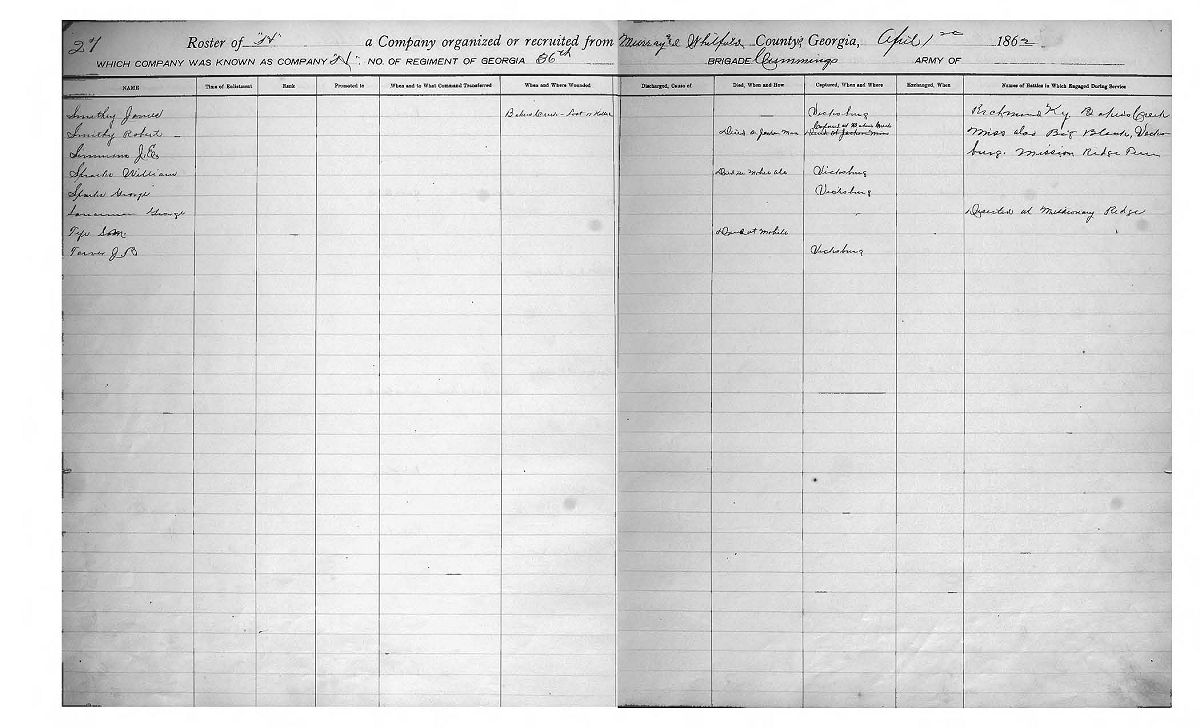 27
Roster of "H" a Company organized or recruited from Murray & Whitfield County, Georgia, April 1st 1862
WHICH COMPANY WAS KNOWN AS COMPANY "H". NO. OF REGIMENT OF GEORGIA 36th BRIGADE Cummings ARMY OF
NAME Time of Enlistment Rank Promoted to When and to What Command Transferred When and Where Wounded Discharged, Cause of Died, When and How Captured, When and Where Exchanged, When Names of Battles in Which Engaged During Service
Smithy James Bakers Creek Vicksburg Richmond Ky Bakers Creek
Smithy Robert Died at Jackson Miss Miss also Big Black, Vicks-
Simmons J. E. burg. Mission Ridge Tenn
Sparks William Died in Mobile Ala Vicksburg
Sparks George Vicksburg
George Deserted at Missionary Ridge
Tye Sam. Died at Mobile
J B Vicksburg